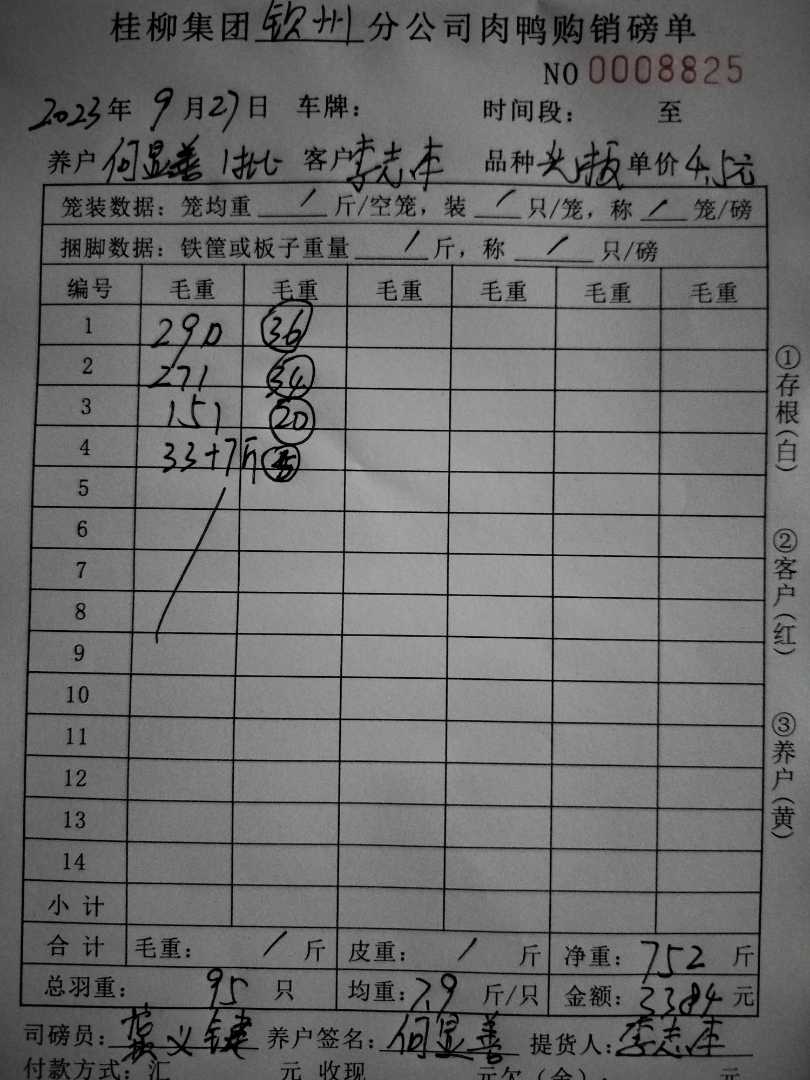 桂柳集团钦州分公司肉鸭购销磅单
NO 0008825
2023年 9月27日 车牌: 时间段: 至
养户 何显善 1批 客户 李志本 品种 单价 4.5元
笼装数据: 笼均重 / 斤/空笼, 装 / 只/笼, 称 / 笼/磅
捆脚数据: 铁筐或板子重量 / 斤, 称 / 只/磅
编号 毛重 毛重 毛重 毛重 毛重 毛重
1 290 36
2 271 34
3 151 20
4 33+7斤 5
5
6
7
8
9
10
11
12
13
14
小计
合计 毛重: / 斤 皮重: / 斤 净重: 752 斤
总羽重: 95 只 均重: 7.9 斤/只 金额: 3384 元
司磅员: 义键 养户签名: 何显善 提货人: 李志本
付款方式: 汇 元 收现 元欠(余): 元
①存根(白)
②客户(红)
③养户(黄)